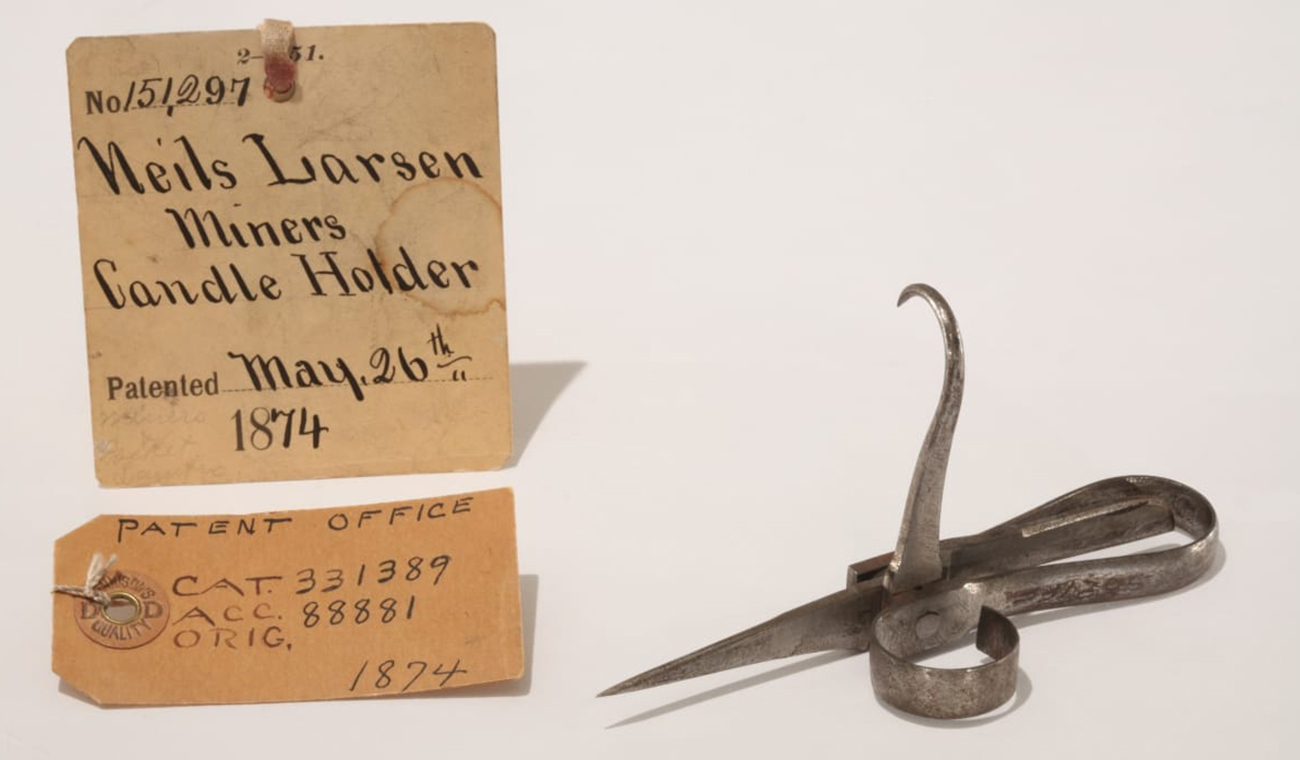 No 151,297
Neils Larsen
Miners
Candle Holder
Patented May. 26th
1874
PATENT OFFICE
CAT. 331389
ACC. 88881
ORIG.
1874
QUALITY